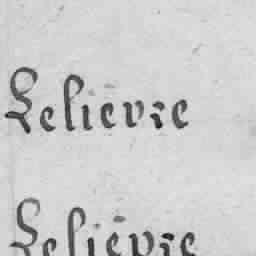 Lelievre
Lelievre